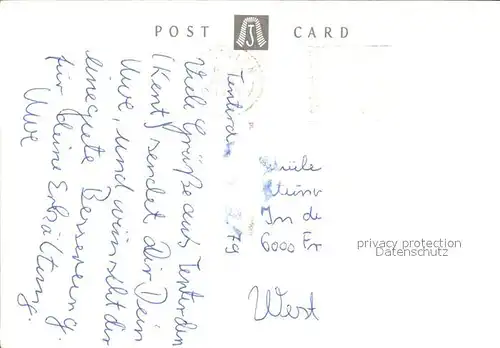 POST CARD
J
Tenterden
79
Viele Grüße aus Tenterden
(Kent) sendet dir Dein
Uwe, und wünscht dir
eine gute Besserung
für deine Erkältung.
Uwe
In de
6000 Fr
West
privacy protection
Datenschutz